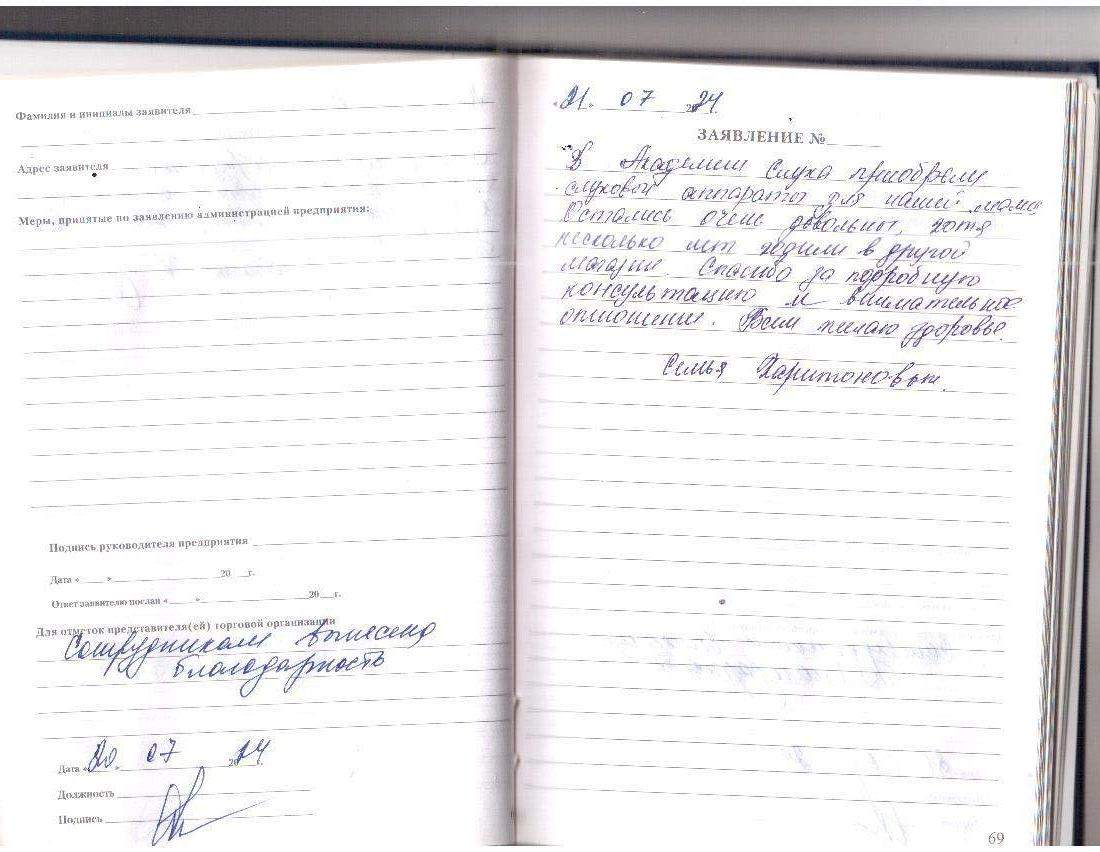 Фамилия и инициалы заявителя
Адрес заявителя
Меры, принятые по заявлению администрацией предприятия:
Подпись руководителя предприятия
Дата « » 20 г.
Ответ заявителю послан « » 20 г.
Для отметок представителя(ей) торговой организации
Сотрудникам вынесена
благодарность
Дата «20» 07 2024 г.
Должность
Подпись
«21» 07 2024
ЗАЯВЛЕНИЕ №
В Академии Слуха приобрели
слуховой аппараты для нашей мамы
Остались очень довольны, хотя
несколько лет ходили в другой
магазин. Спасибо за подробную
консультацию и внимательное
отношение. Всем желаю здоровье.
Семья Харитоновых.
69